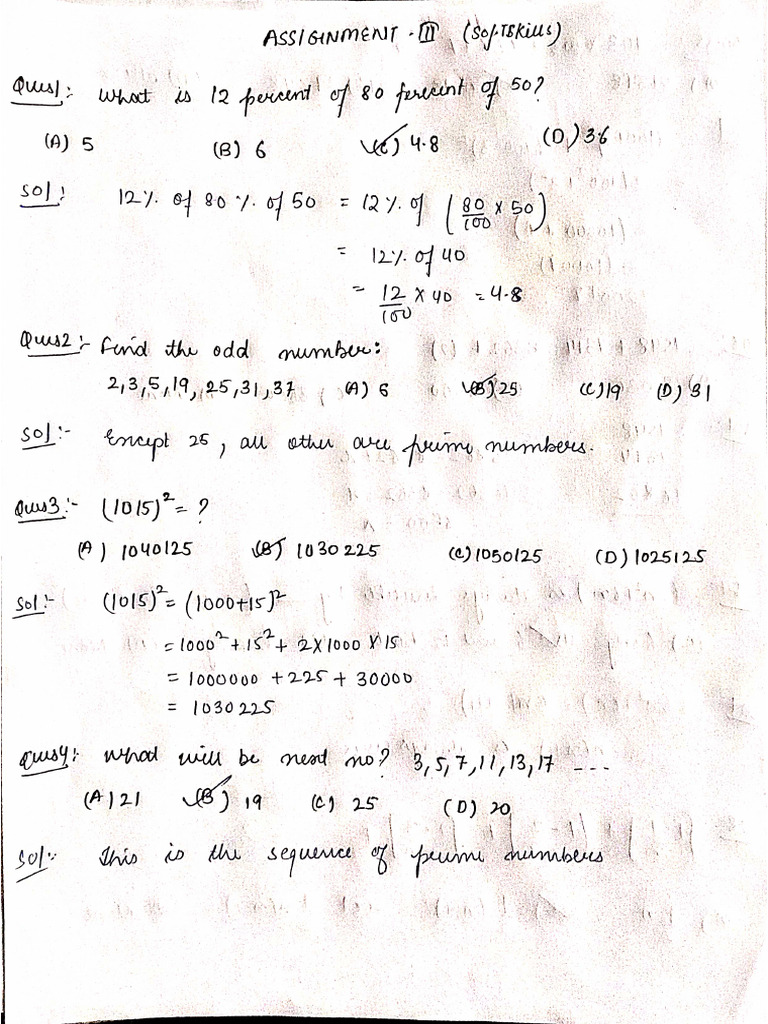 ASSIGNMENT - III (SoftSkills)
Ques1:- What is 12 percent of 80 percent of 50?
(A) 5 (B) 6 (C) 4.8 (D) 36
Sol:- 12% of 80% of 50 = 12% of (80/100 × 50)
= 12% of 40
= 12/100 × 40 = 4.8
Ques2:- Find the odd number:
2,3,5,19,25,31,37 (A) 5 (B) 25 (C) 19 (D) 31
Sol:- Except 25, all other are prime numbers.
Ques3:- (1015)² = ?
(A) 1040125 (B) 1030225 (C) 1050125 (D) 1025125
Sol:- (1015)² = (1000+15)²
= 1000² + 15² + 2×1000×15
= 1000000 + 225 + 30000
= 1030225
Ques4:- What will be next no? 3,5,7,11,13,17 ---
(A) 21 (B) 19 (C) 25 (D) 20
Sol:- This is the sequence of prime numbers